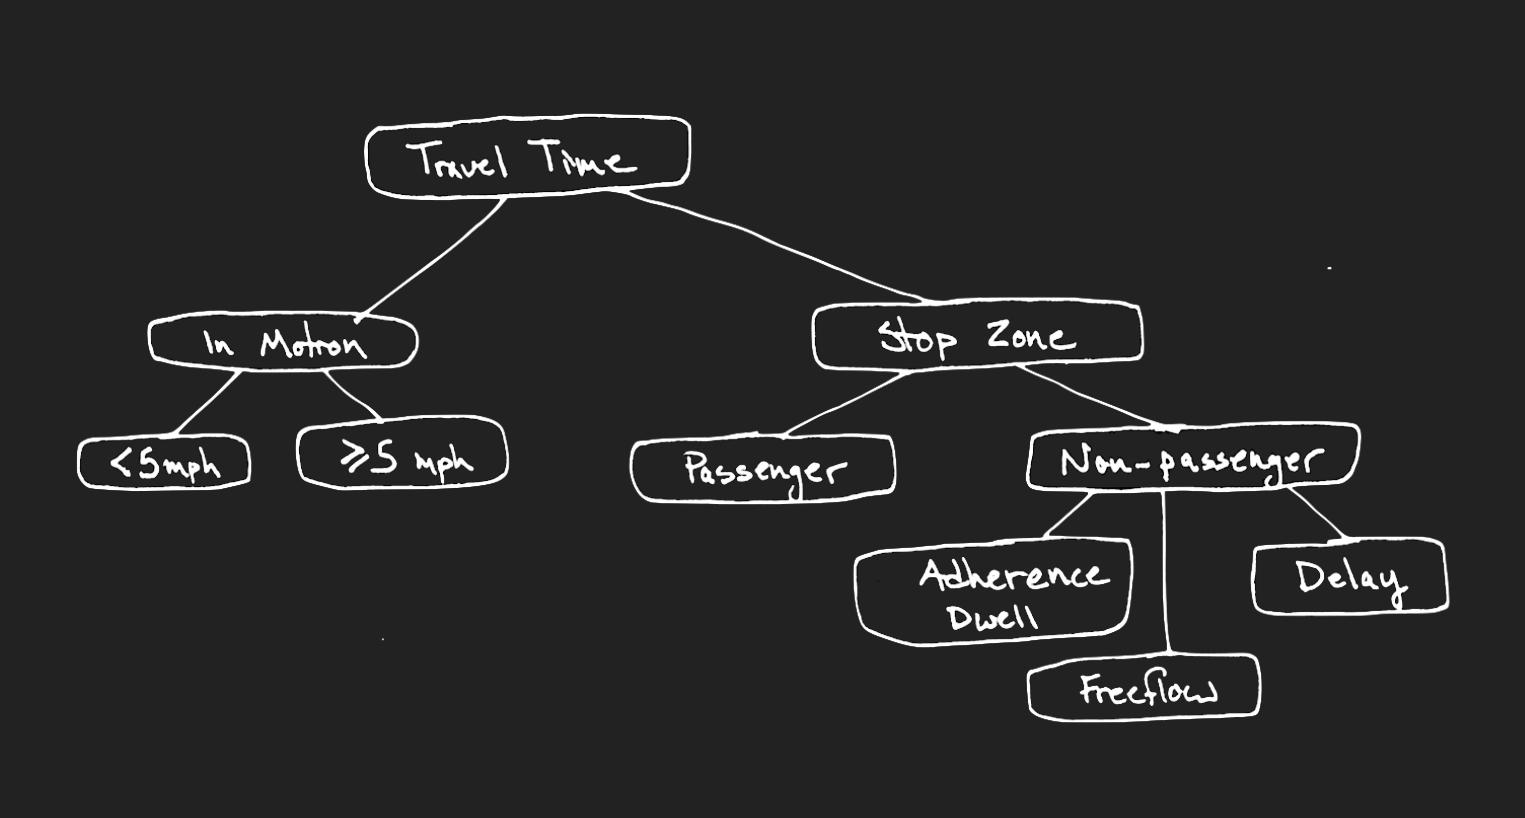 Travel Time
In Motion
Stop Zone
<5mph
≥5 mph
Passenger
Non-passenger
Adherence
Dwell
Delay
Freeflow